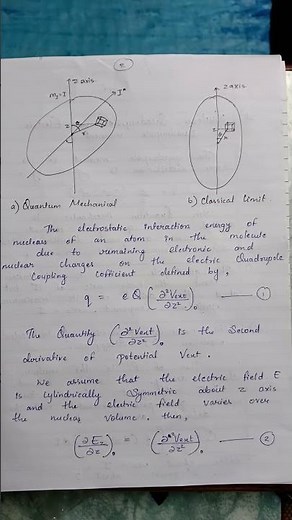 5
z axis
m_I = I
I*
z
θ
r
z axis
z
r
a) Quantum Mechanical
b) Classical limit
The electrostatic interaction energy of
nucleus of an atom in the molecule
due to remaining electronic and
nuclear charges on the electric Quadrupole
Coupling Cofficient defined by,
q = e Q (∂²Vext/∂z²)₀ —— ①
The Quantity (∂²Vext/∂z²)₀ is the Second
derivative of potential Vext.
We assume that the electric field E
is Cylindrically Symmetric about z axis
and the electric field varies over
the nuclear volume. then,
(∂E_z/∂z)₀ = (∂²Vext/∂z²)₀ —— ②